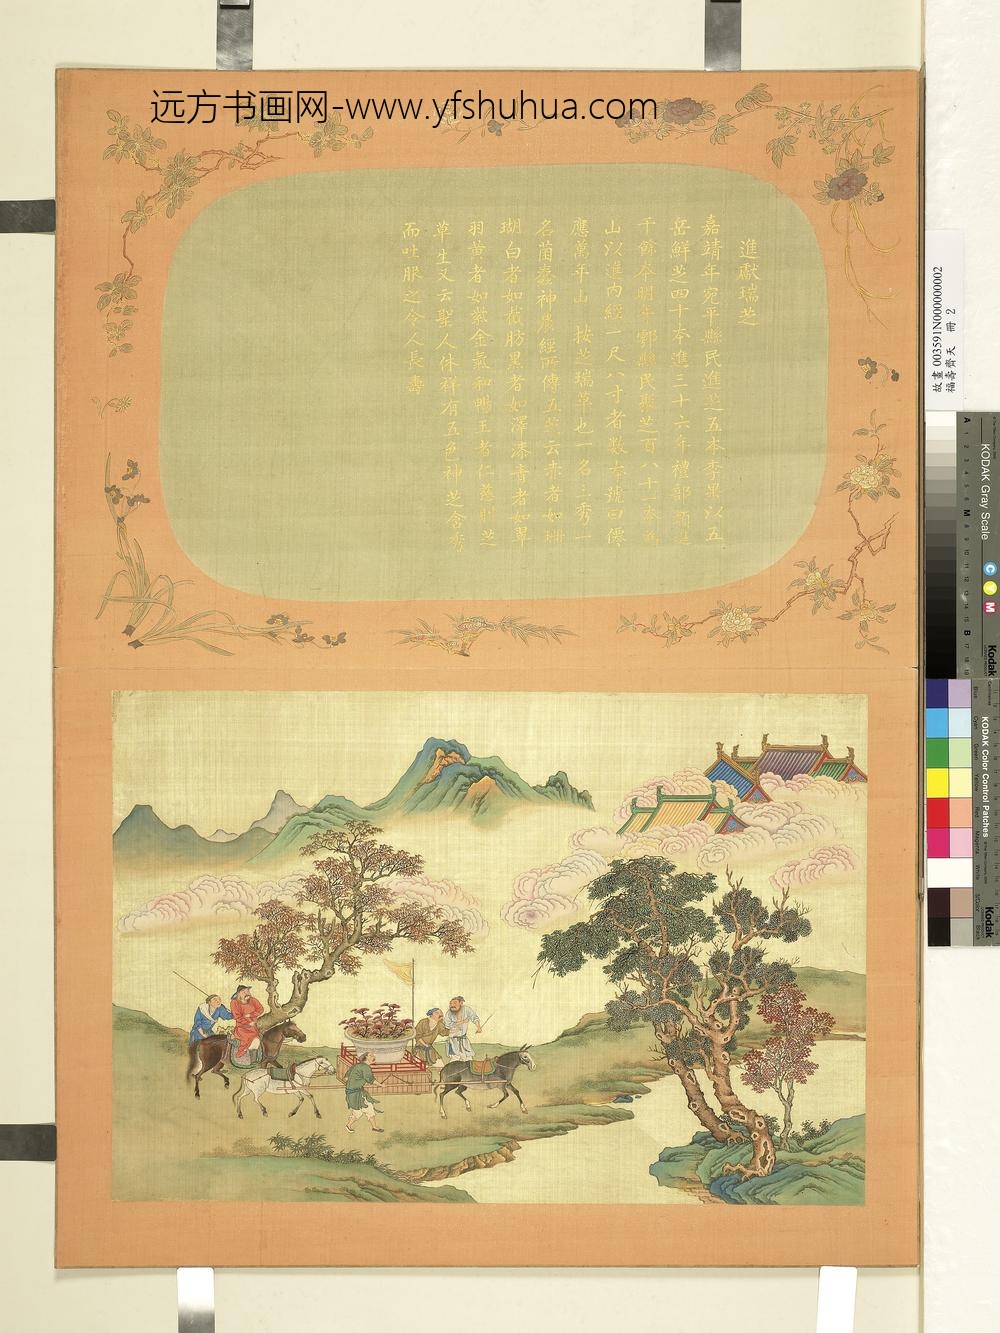 远方书画网-www.yfshuhua.com
進獻瑞芝
嘉靖年宛平縣民進芝五本李果以五
岳鮮芝四十本進三十六年禮部類進
千餘本明年鄠縣民聚芝百八十一本為
山以進內經一尺八寸者數本號曰僊
應萬年山 按芝瑞草也一名三秀一
名菌蠢神農經所傳五芝云赤者如珊
瑚白者如截肪黑者如澤漆青者如翠
羽黃者如紫金氣和暢王者仁慈則芝
草生又云聖人休祥有五色神芝含秀
而吐服之令人長壽
故畫 003591N000000002
福壽齊天 冊 2
KODAK Gray Scale
A 1 2 3 4 5 6 M 8 9 10 11 12 13 14 15 B 17 18
C Y M
Kodak
KODAK Color Control Patches
Blue Cyan Green Yellow Red Magenta White 3/Color Black
Kodak